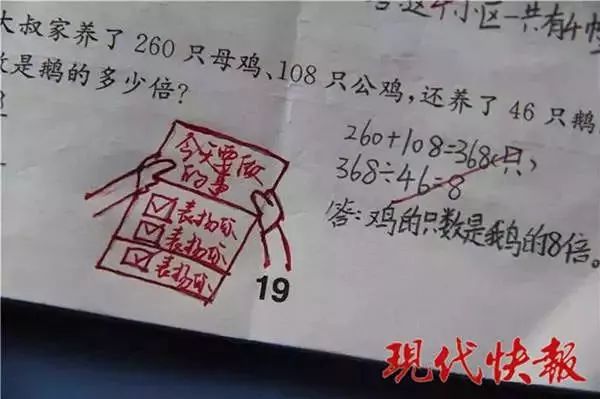 这个小区一共有4幢
大叔家养了 260 只母鸡、108 只公鸡，还养了 46 只鹅
是鹅的多少倍？
260+108=368(只)
368÷46=8
答：鸡的只数是鹅的8倍。
今天要做
的事
表扬你
表扬你
表扬你
19
现代快報